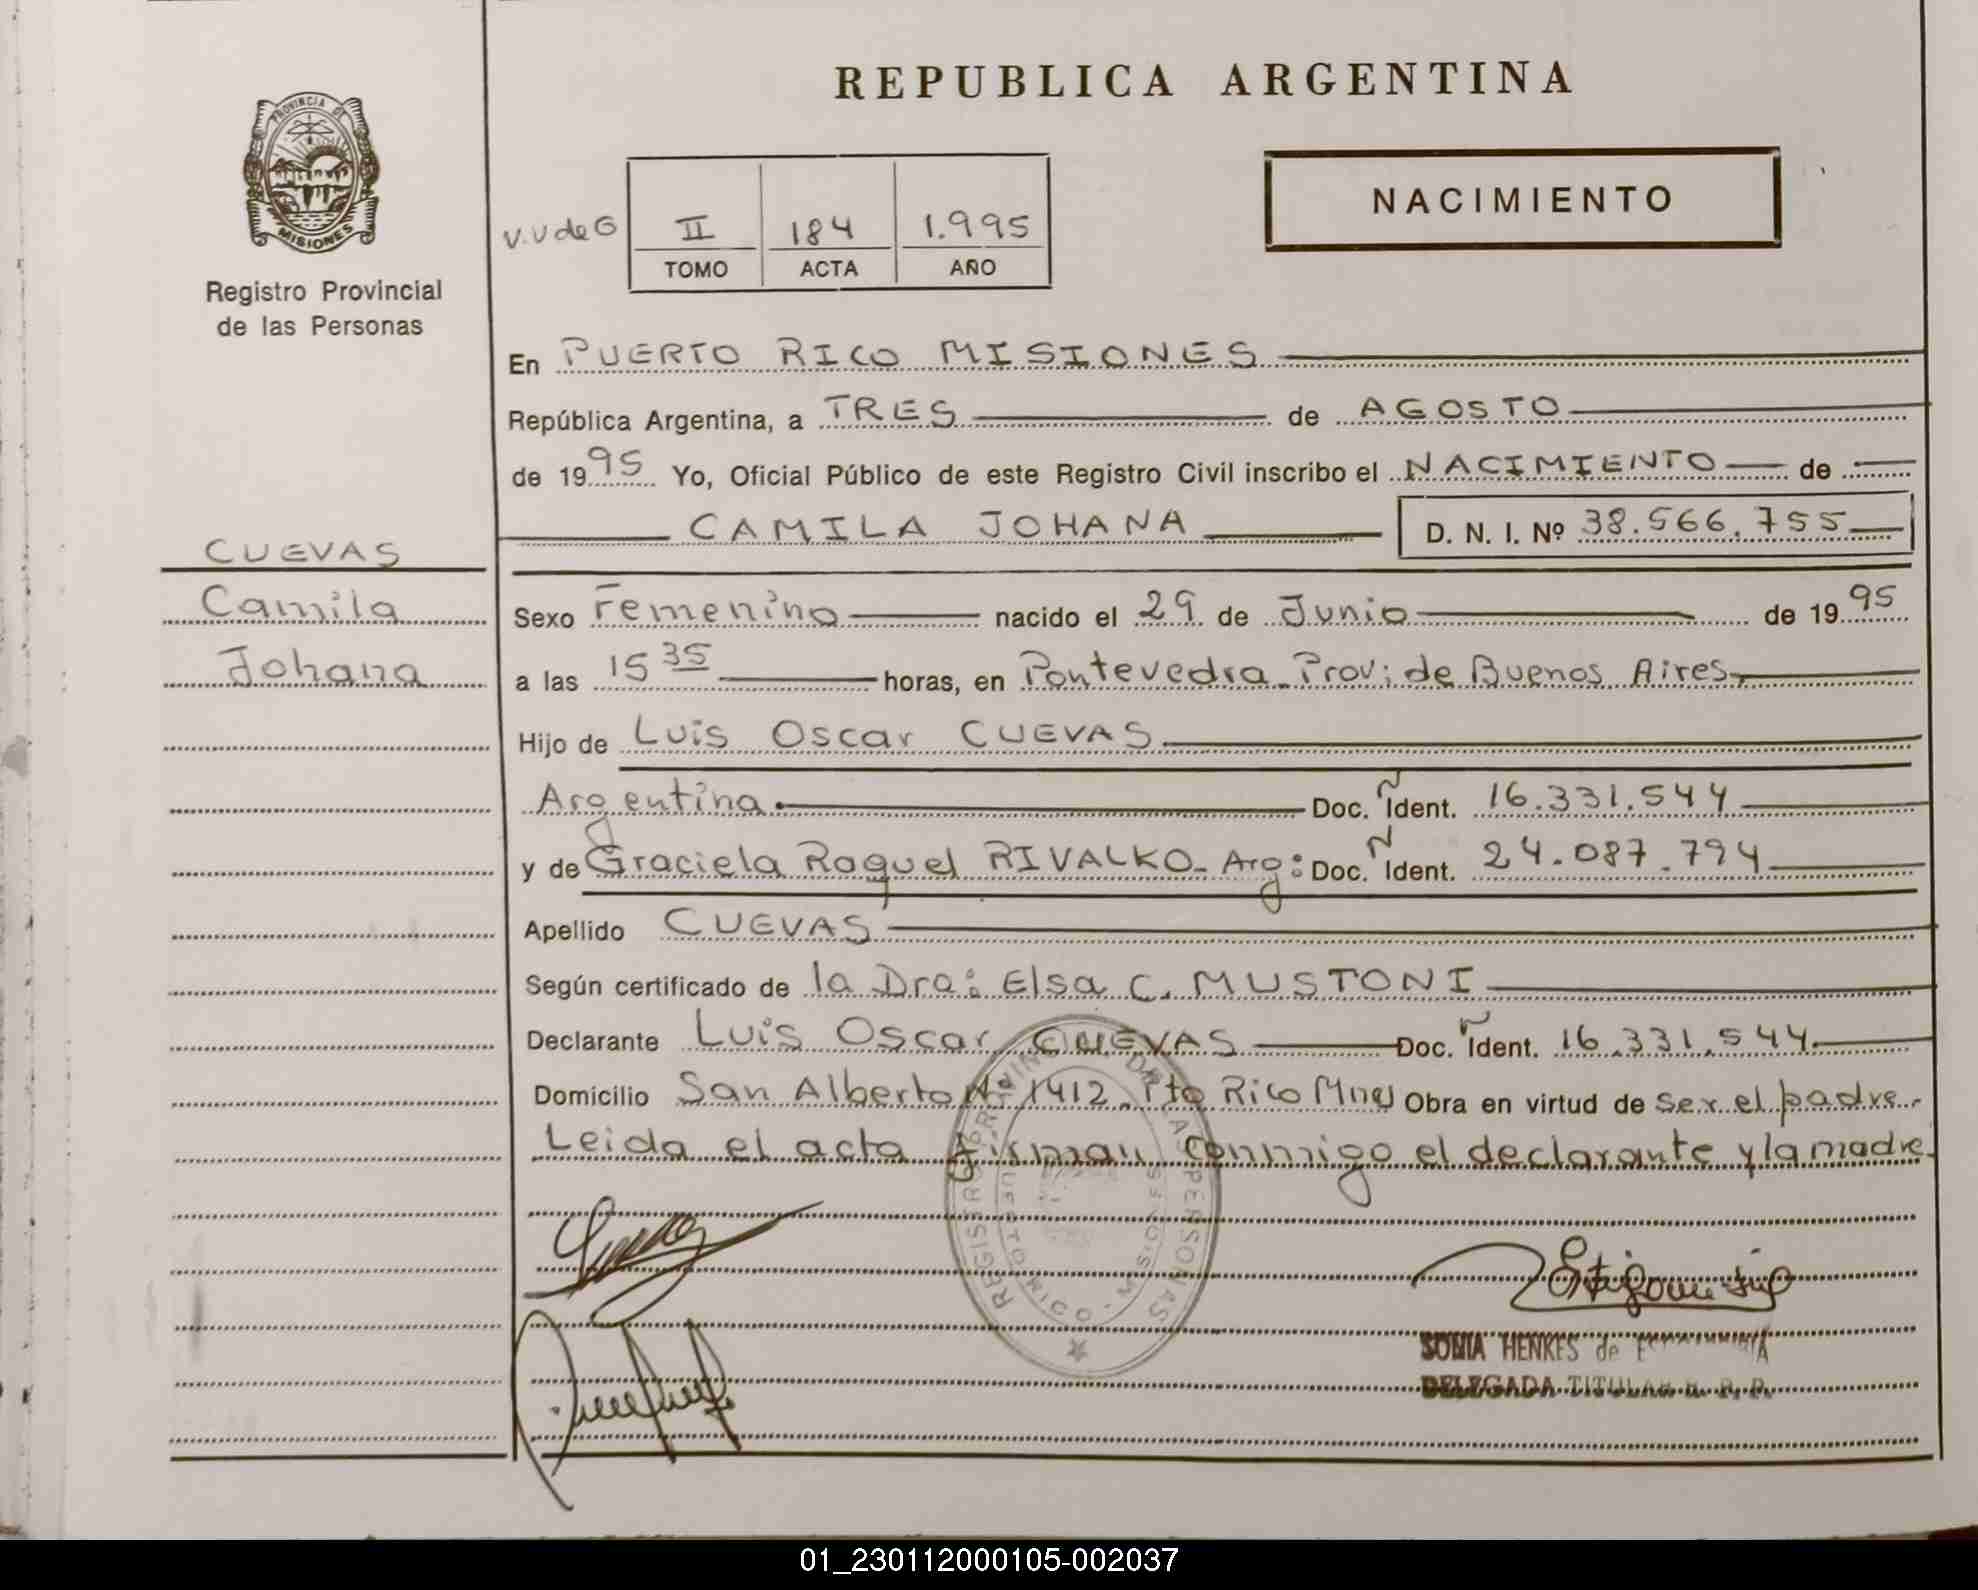 REPUBLICA ARGENTINA
PROVINCIA DE
MISIONES
Registro Provincial
de las Personas
NACIMIENTO
V.V de G II 184 1.995
TOMO ACTA AÑO
En PUERTO RICO MISIONES
República Argentina, a TRES de AGOSTO
de 1995 Yo, Oficial Público de este Registro Civil inscribo el NACIMIENTO de
CAMILA JOHANA D. N. I. Nº 38.566.755
CUEVAS
Camila
Johana
Sexo Femenino nacido el 29 de Junio de 1995
a las 15 35 horas, en Pontevedra - Prov: de Buenos Aires
Hijo de Luis Oscar CUEVAS
Argentina Doc. Ñ Ident. 16.331.544
y de Graciela Raquel RIVALKO - Arg: Doc. Ñ Ident. 24.087.794
Apellido CUEVAS
Según certificado de la Dra: Elsa C. MUSTONI
Declarante Luis Oscar CUEVAS Doc. Ñ Ident. 16.331.544
Domicilio San Alberto Nº 1412 Pto Rico Mnes Obra en virtud de ser el padre.
Leida el acta firman conmigo el declarante y la madre.
REGISTRO PROVINCIAL DE LAS PERSONAS
PUERTO RICO - MISIONES
SONIA HENKES de
DELEGADA TITULAR R. P. P.
01_230112000105-002037